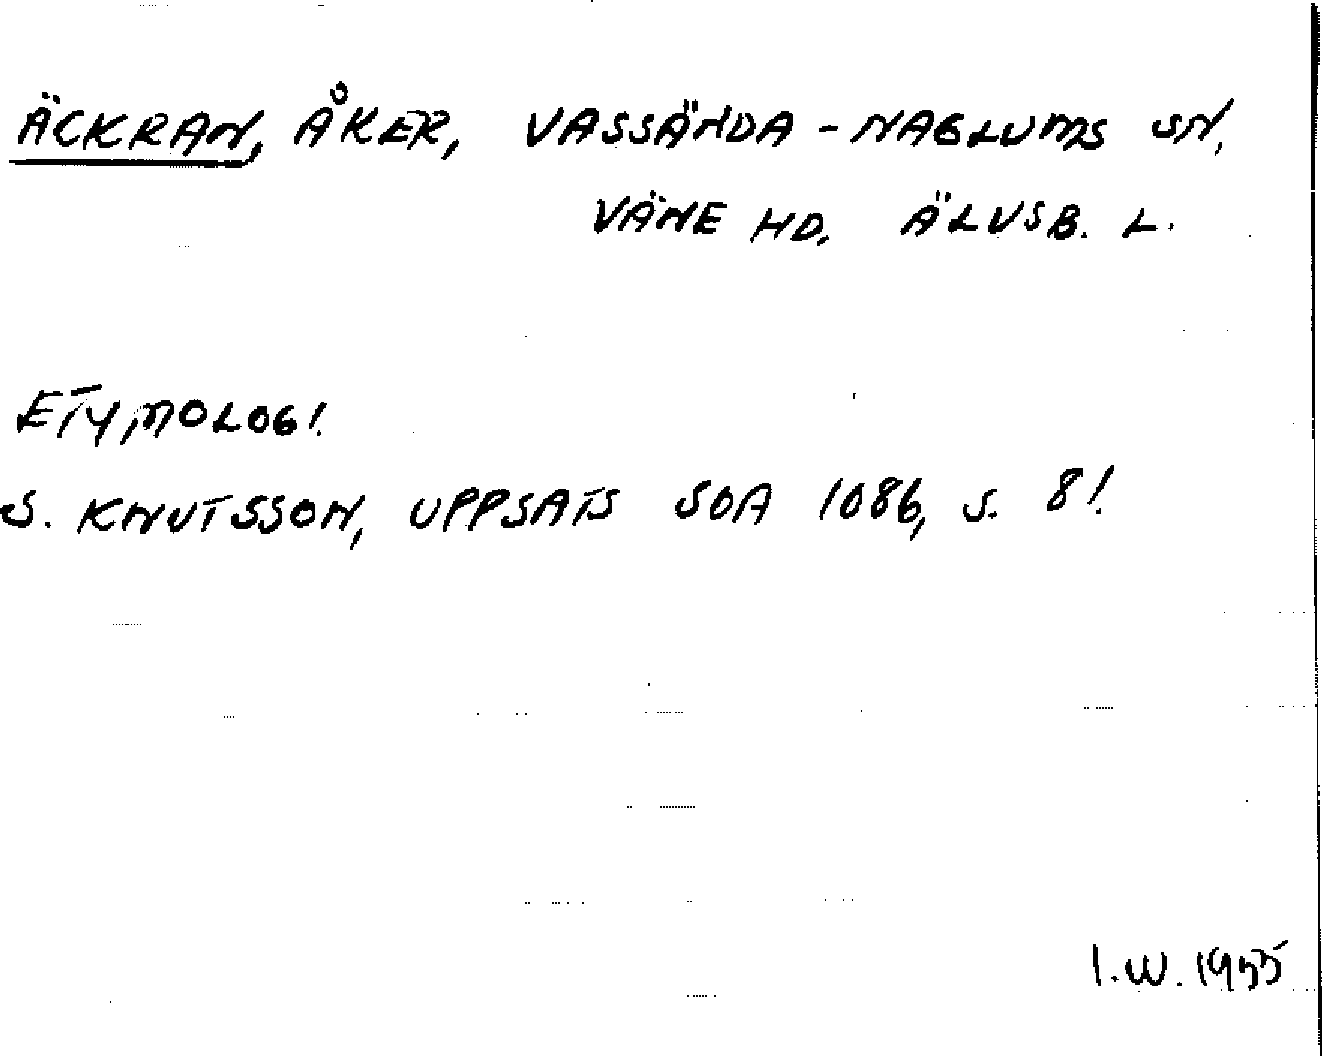 ÄCKRAN, ÅKER, VASSÄNDA-NAGLUMS SN,
VÄNE HD, ÄLVSB. L.
ETYMOLOGI.
S. KNUTSSON, UPPSATS SOA 1086, S. 8!
I.W. 1955